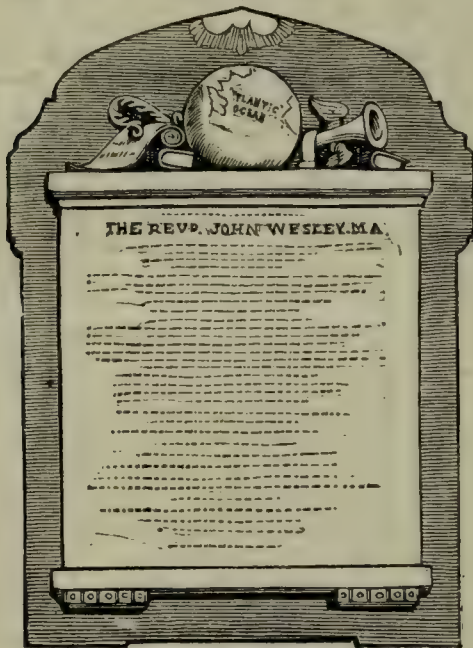 ATLANTIC
OCEAN
THE REVD. JOHN WESLEY. M.A.